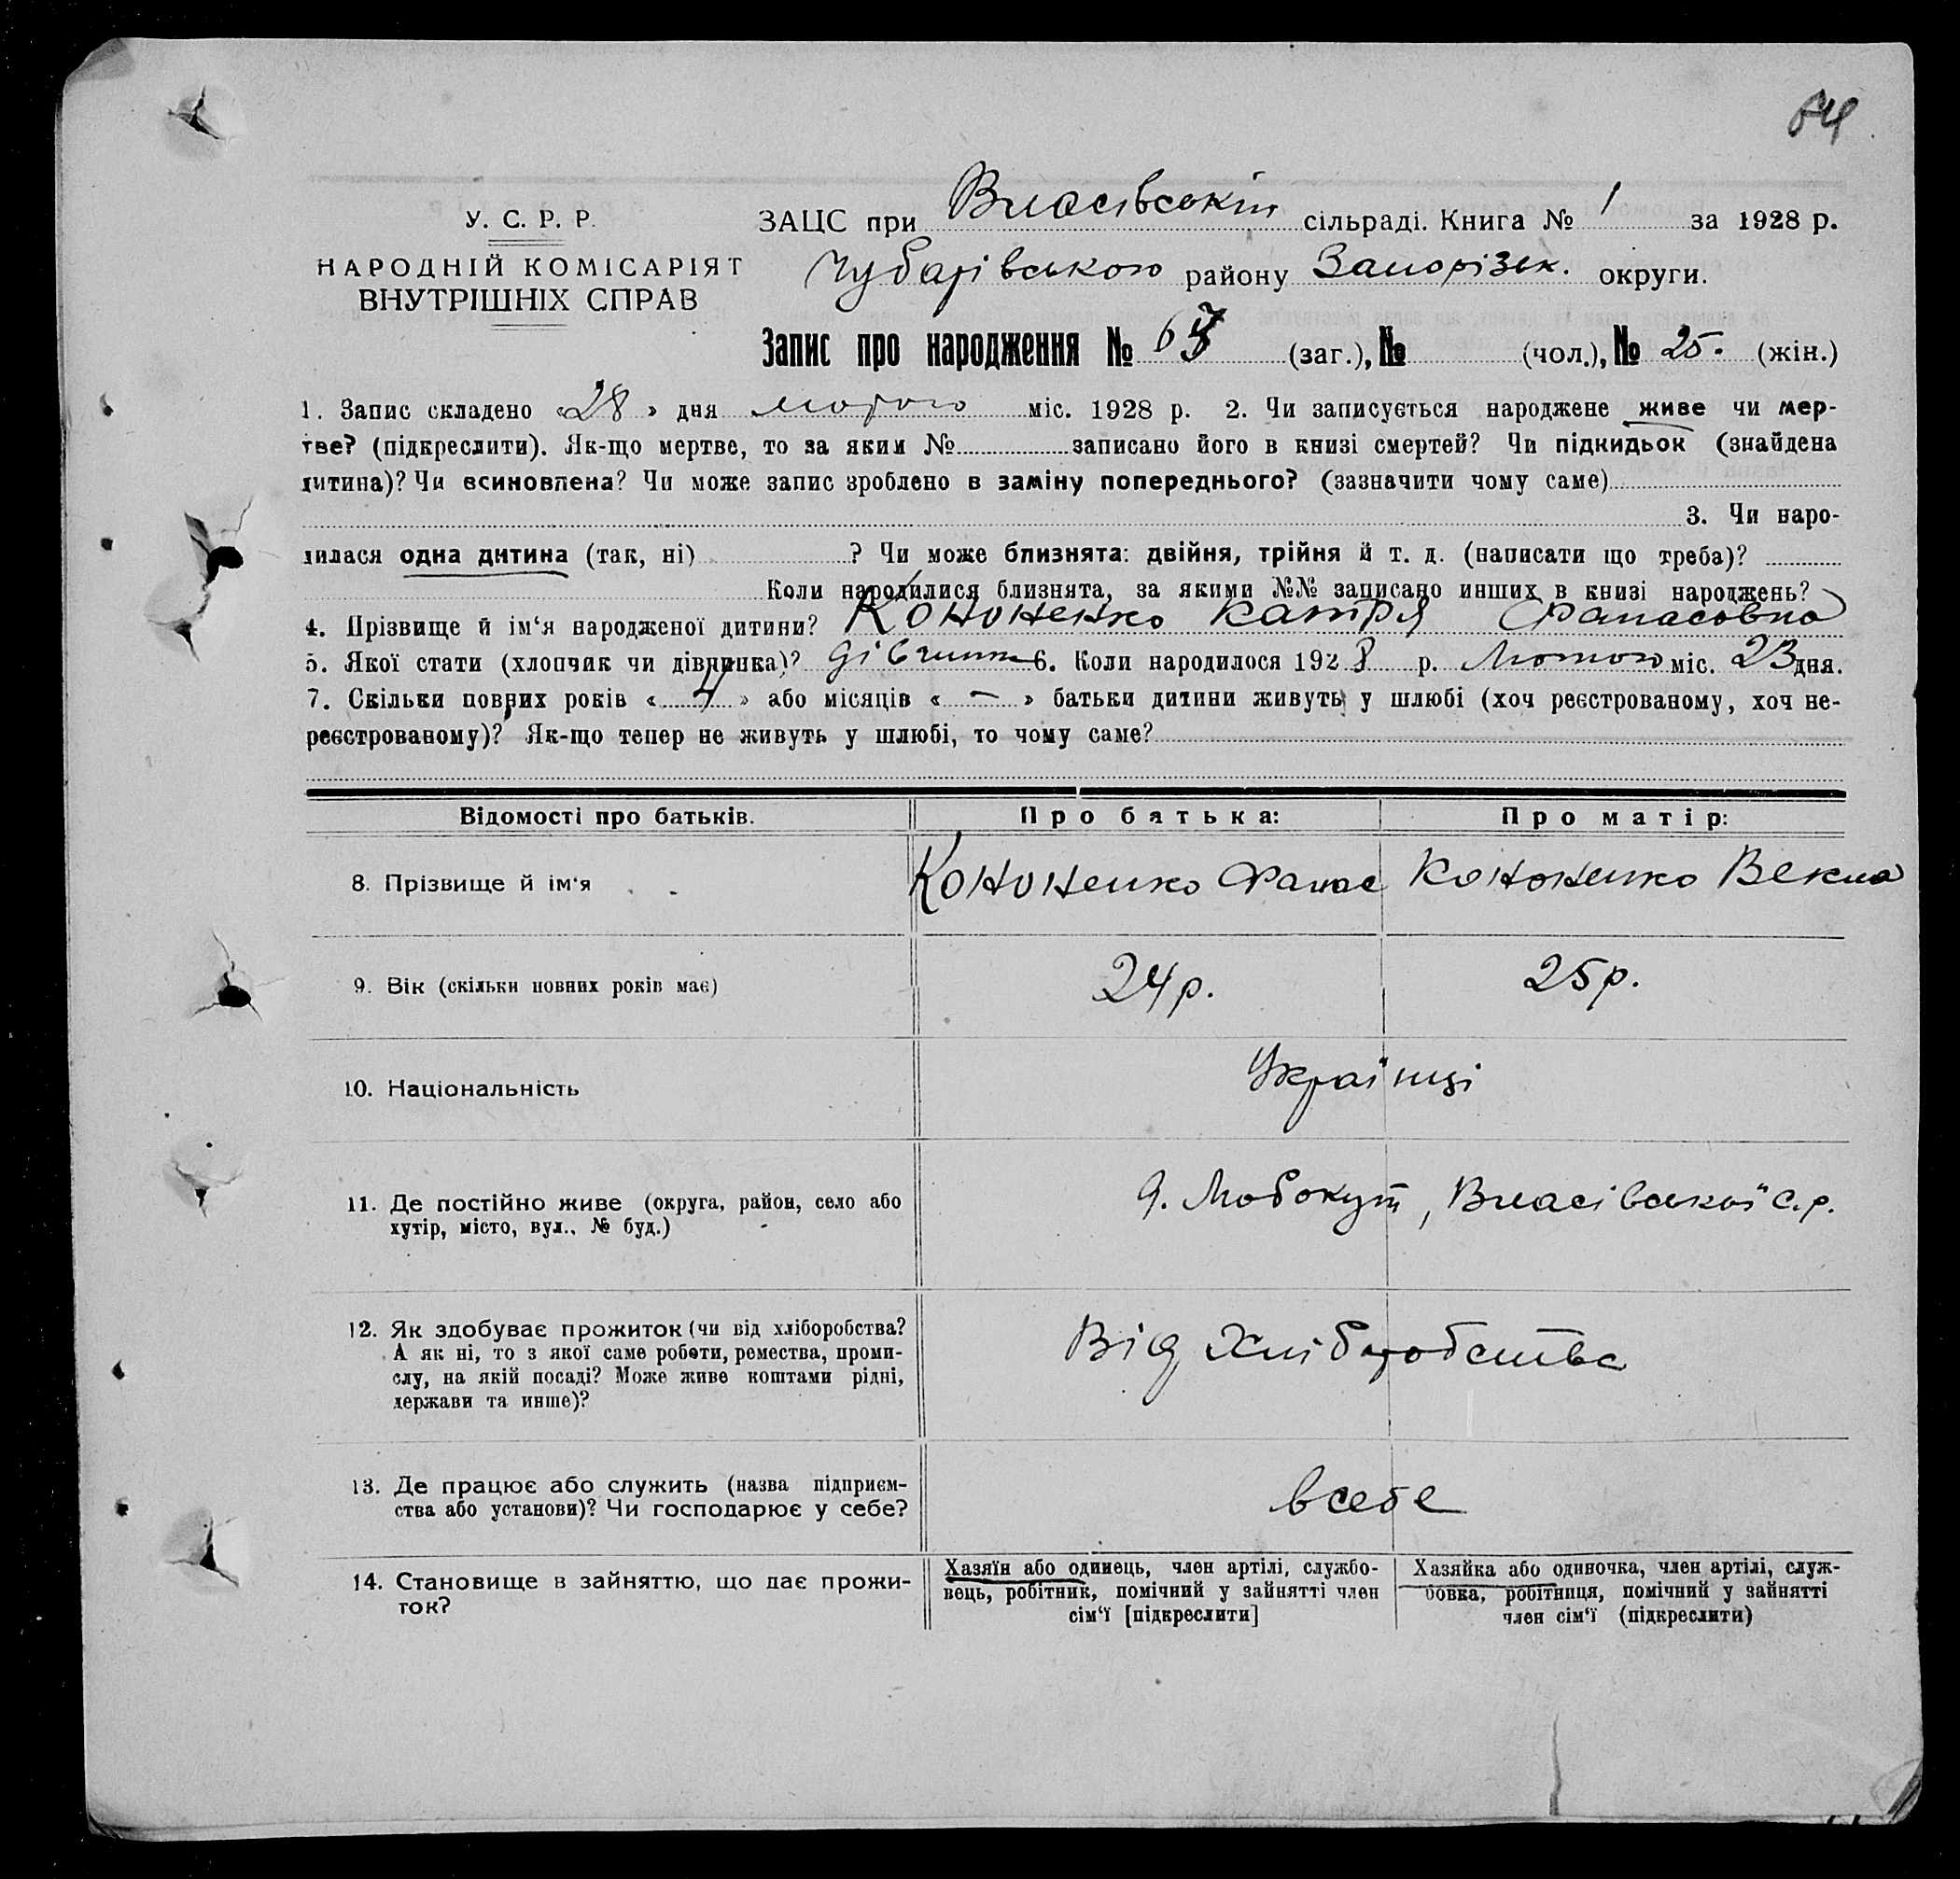 64
У. С. Р. Р.
НАРОДНІЙ КОМІСАРІЯТ
ВНУТРІШНІХ СПРАВ
ЗАЦС при Власівській сільраді. Книга № 1 за 1928 р.
Чубарівського району Запорізьк. округи.
Запис про народження № 67 (заг.), № (чол.), № 25. (жін.)
1. Запис складено «28» дня лютого міс. 1928 р. 2. Чи записується народжене живе чи мер-
тве? (підкреслити). Як-що мертве, то за яким № записано його в книзі смертей? Чи підкидьок (знайдена
дитина)? Чи всиновлена? Чи може запис зроблено в заміну попереднього? (зазначити чому саме)
3. Чи наро-
дилася одна дитина (так, ні) ? Чи може близнята: двійня, трійня й т. д. (написати що треба)?
Коли народилися близнята, за якими №№ записано инших в книзі народжень?
4. Прізвище й ім‘я народженої дитини? Кононенко Катря Фанасовна
5. Якої стати (хлопчик чи дівчинка)? дівчинка 6. Коли народилося 1928 р. Лютого міс. 23 дня.
7. Скільки повних років « » або місяців « — » батьки дитини живуть у шлюбі (хоч реєстрованому, хоч не-
реєстрованому)? Як-що тепер не живуть у шлюбі, то чому саме?
Відомості про батьків. Про батька: Про матір:
8. Прізвище й ім‘я Кононенко Фанас Кононенко Векла
9. Вік (скільки повних років має) 24 р. 25 р.
10. Національність Українці
11. Де постійно живе (округа, район, село або
хутір, місто, вул., № буд.)
Любокут, Власівської с.р.
12. Як здобуває прожиток (чи від хліборобства?
А як ні, то з якої саме роботи, ремества, проми-
слу, на якій посаді? Може живе коштами рідні,
держави та инше)?
Від Хліборобства
13. Де працює або служить (назва підприєм-
ства або установи)? Чи господарює у себе?
в себе
14. Становище в зайняттю, що дає прожи-
ток?
Хазяїн або одинець, член артілі, службо-
вець, робітник, помічний у зайнятті член
сім‘ї [підкреслити]
Хазяйка або одиночка, член артілі, служ-
бовка, робітниця, помічний у зайнятті
член сім‘ї (підкреслити)